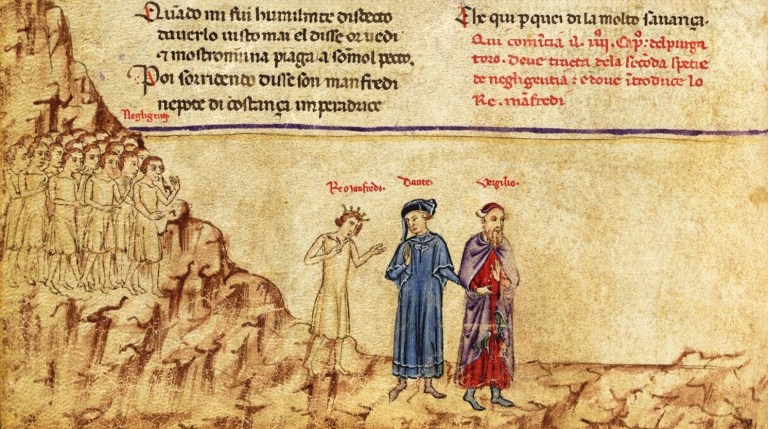 Quādo mi fui humilmte disdecto
dauerlo uisto mai el disse or uedi
⁊ mostromi una piaga a somol pecto.
Poi sorridendo disse son manfredi
nepote di costança imperadrice
Che qui p quei di la molto sauança.
Qui comīcia il .iiij. Cap. del purga
toro. doue tracta dela secōda spetie
de negligentia: e doue ītroduce lo
Re. māfredi
Negligenti
Re manfredi.
Dante.
Vergilio.